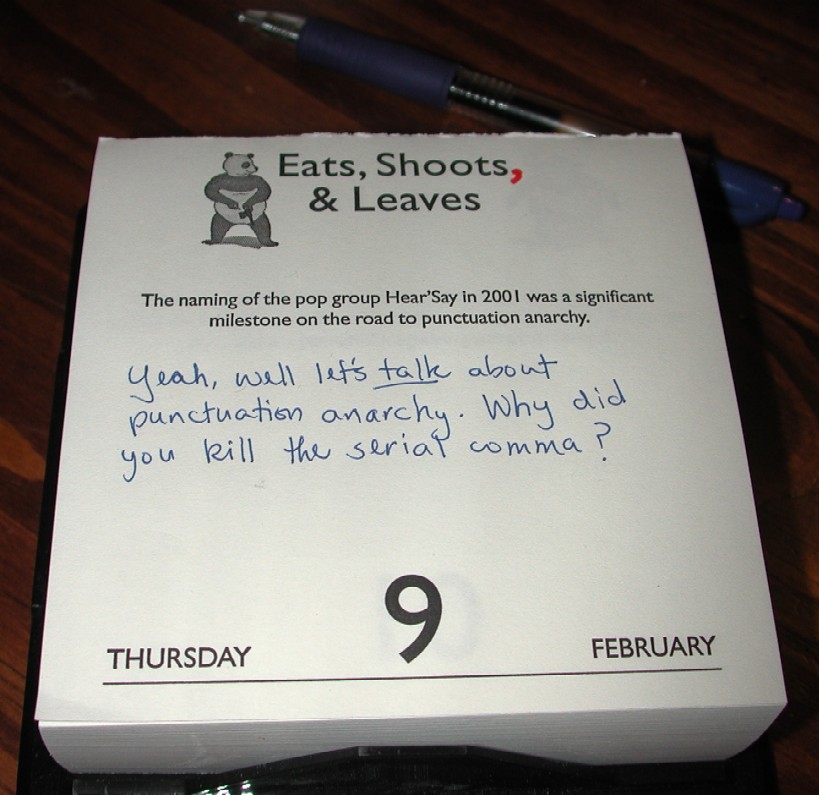 Eats, Shoots,
& Leaves
The naming of the pop group Hear'Say in 2001 was a significant
milestone on the road to punctuation anarchy.
Yeah, well let's talk about
punctuation anarchy. Why did
you kill the serial comma?
9
THURSDAY FEBRUARY